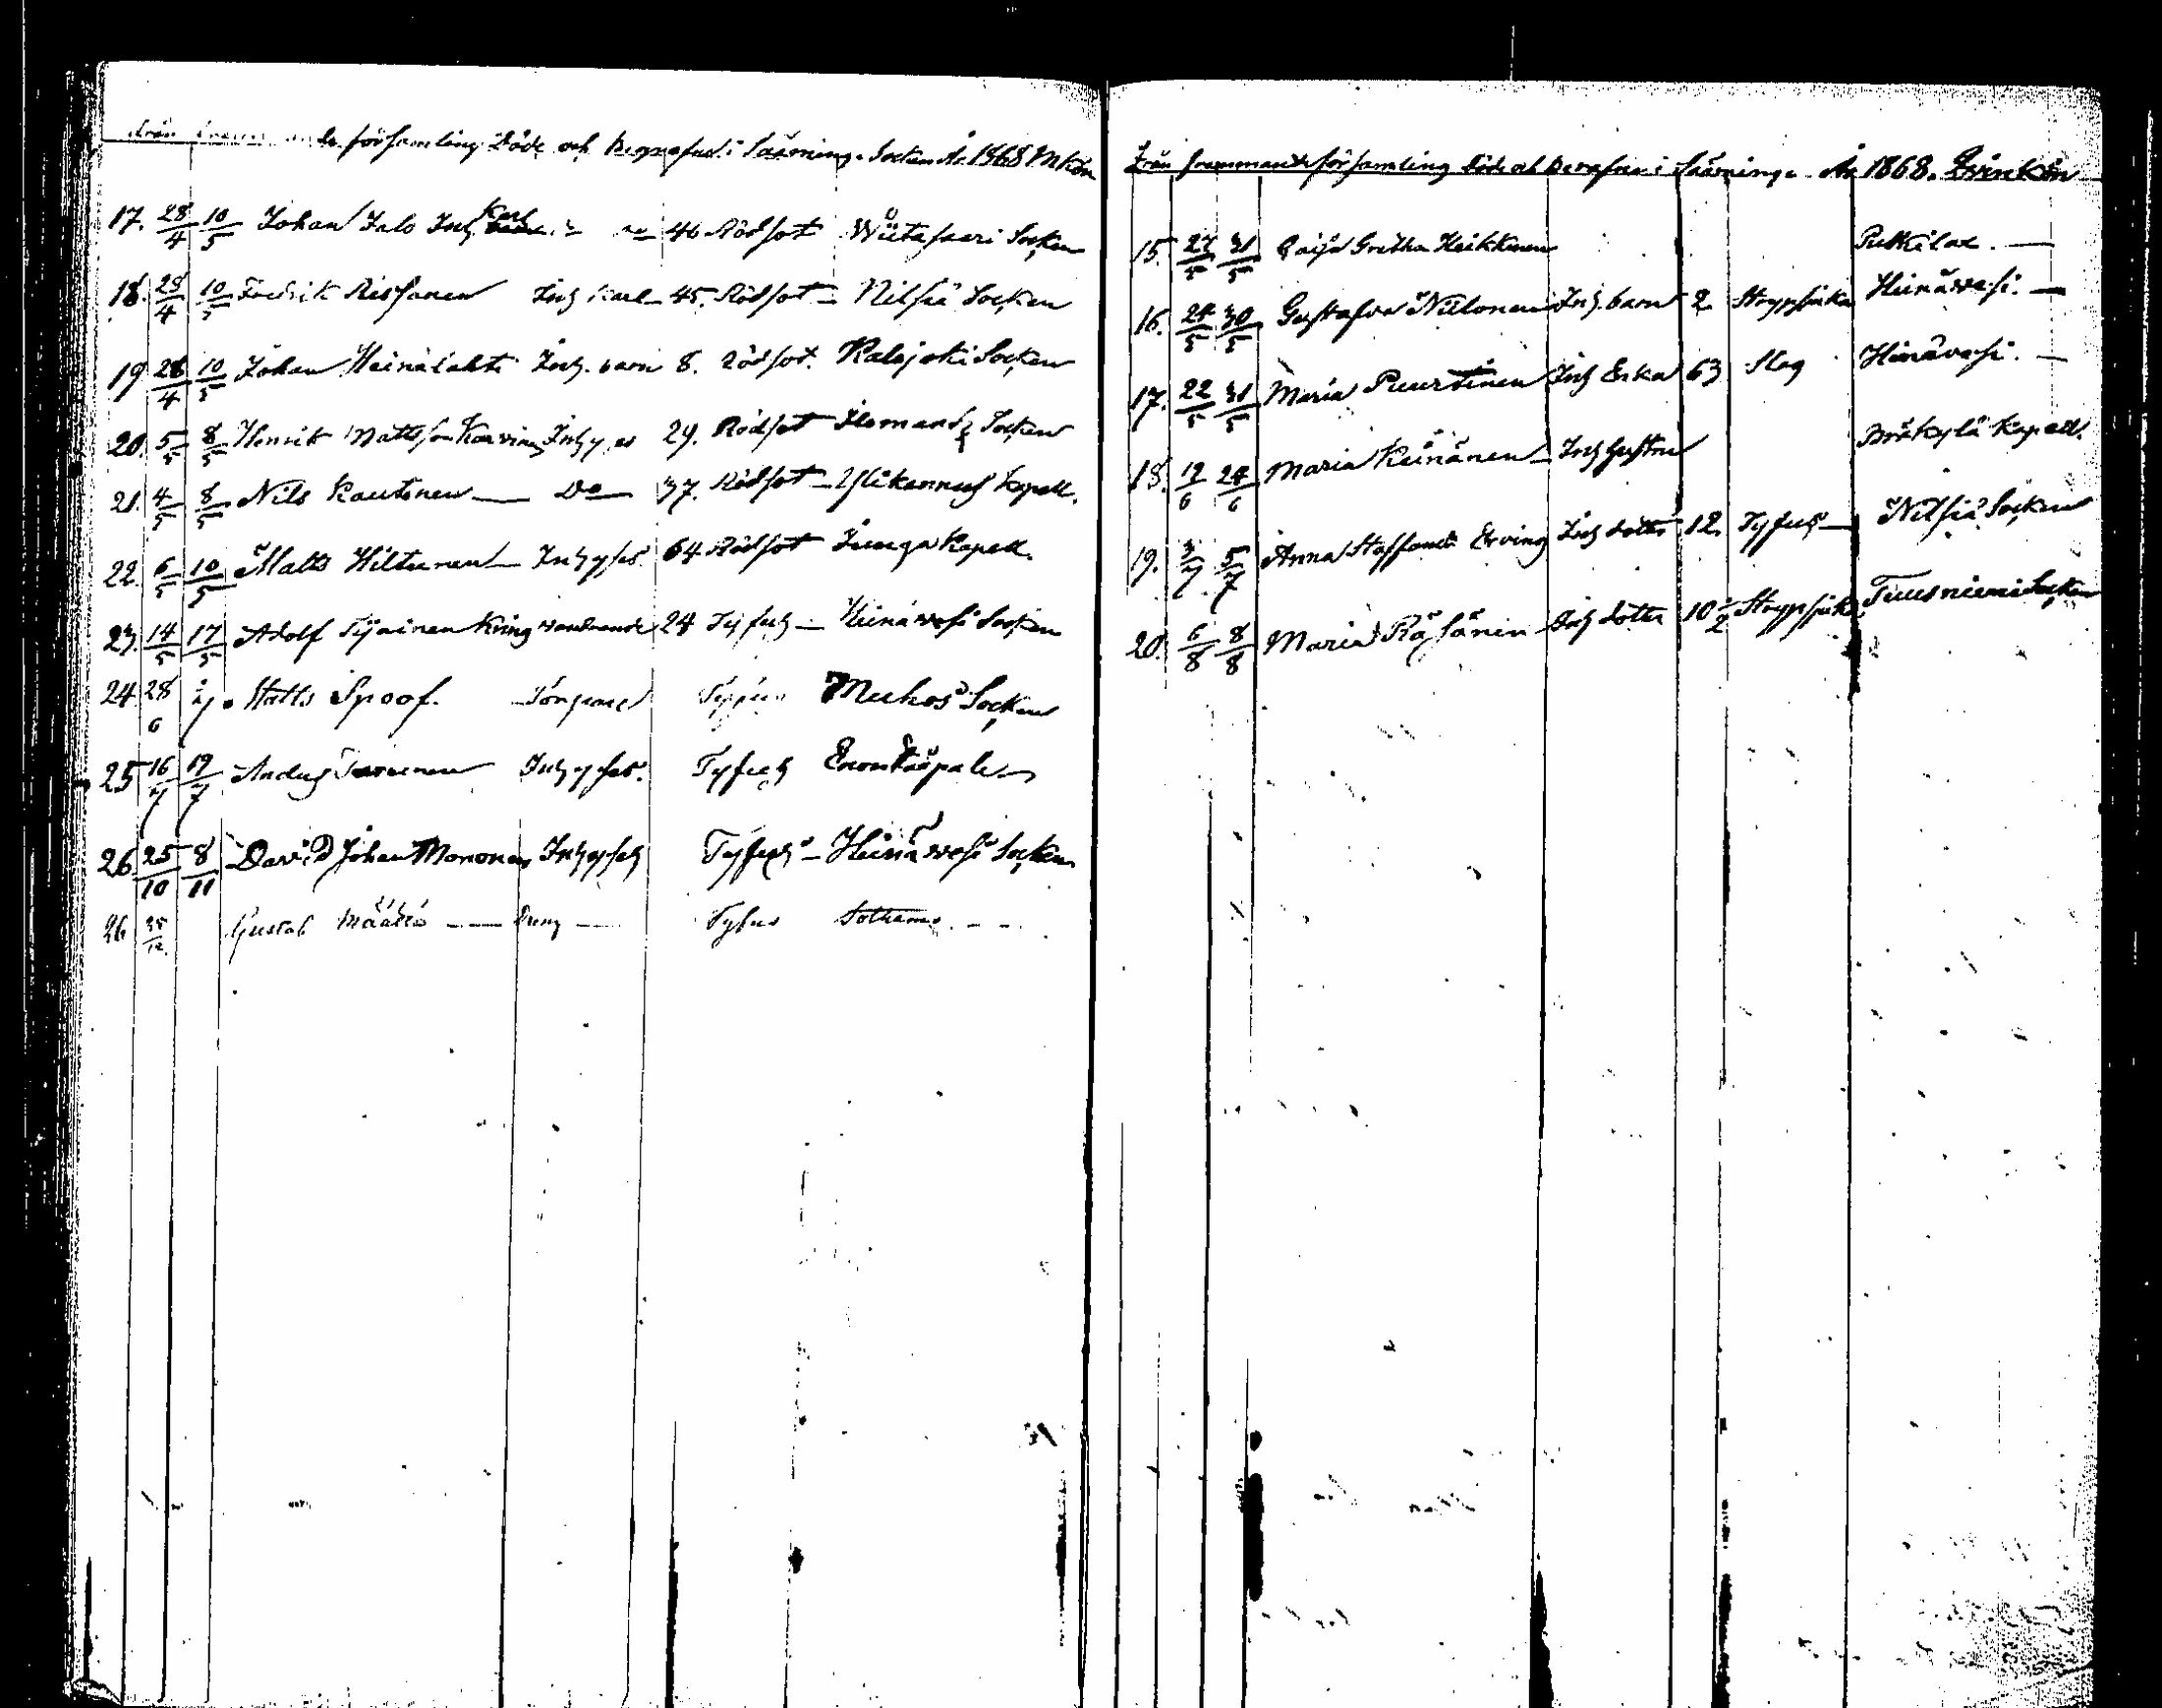 församling Döde och Begrafne i Säminge Socken År 1868 Mkön
17. 28/4 10/5 Johan Jalo Inh Karl 46 Rödsot Wiitasaari Socken
18. 28/4 10/5 Fredrik Rissanen Inh Karl 45. Rödsot Nilsiä Socken
19 28/4 10/5 Johan Heinälahti Inh. barn 8. Rödsot. Kalajoki Socken
20. 5/5 8/5 Henrik Mattsson 29. Rödsot Ilomants Socken
21. 4/5 8/5 Nils Rautonen Do 37. Rödsot Ylikannus Kapell.
22. 6/5 10/5 Matts Hiltunen Inhyses 64 Rödsot Kapell.
23. 14/5 17/5 Adolf Tyninen Kringvandrande 24 Tyfus Heinäwesi Socken
24 28/6 Matts Spoof. Muhos Socken
25 16/7 19/7 Anders Inhyses. Tyfus Enonkoski
26 25/10 8/11 David Johan Mononen Inhyses Tyfus Heinäwesi Socken
26 25/12 Gustaf Määttä Dreng Tyfus Sotkamo
Från frammande församling Döde och Begrafne i Säminge År 1868. Qvinkön
15. 27/5 31/5 Caisa Gretha Heikkinen
16. 24/5 30/5 Gustafva Niilonen Inh. barn 2 Strypsjuka Heinäwesi.
17. 22/5 31/5 Maria Puurtinen Inh Enka 63 Slag Heinäwesi.
18. 19/6 24/6 Maria Keinänen Inh hustru Bräkylä Kapell.
19. 3/7 5/7 Anna Staffansd. Inh dotter 12. Tyfus Nilsiä Socken
20. 6/8 8/8 Maria Räsänen Inh dotter 10 1/2 Strypsjuka Tuusniemi Socken